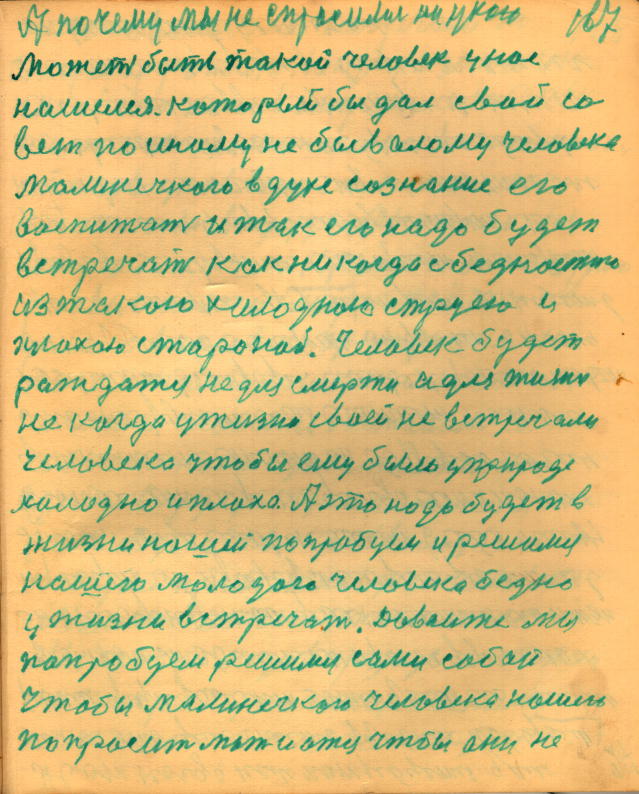 А почему мы не спросили наукою 167
может быть такой человек унас
нашелся. который бы дал свой со
вет по иному не бывалому человека
малинечкого в духе сознание его
воспитат и так его надо будет
встречат как никогда с бедностию
из такою холодною струею и
плохою стороной. Человек будет
раждатц не для смерти а для жизни
не когда ужизни своей не встречали
человека чтобы ему было уприроде
холодно и плохо. А это надо будет в
жизни нашей попробуем и решими
нашего молодого человека бедно
у жизни встречат. Давайте мы
попробуем решими сами собой
Чтобы малинечкого человека нашего
попросит мат и отц чтбы они не